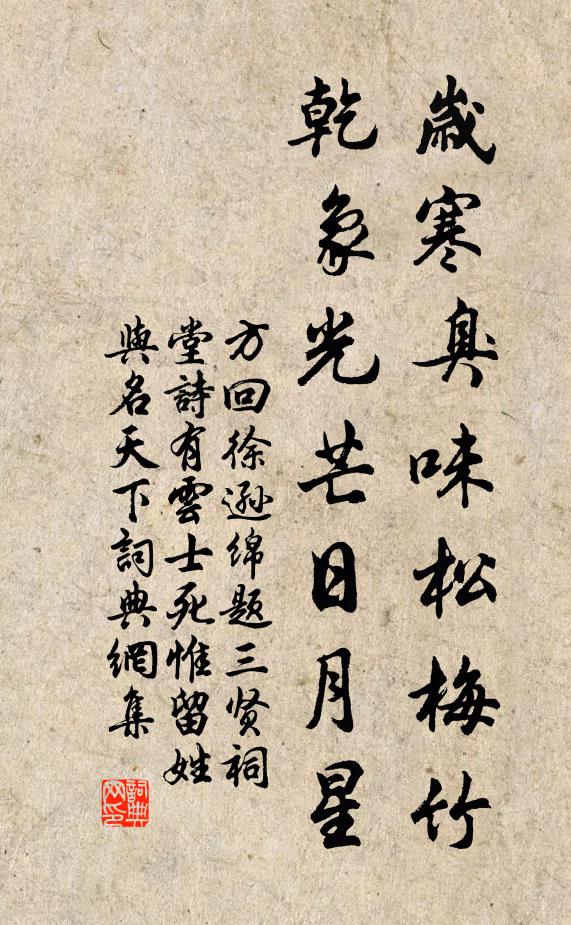 歲寒臭味松梅竹
乾象光芒日月星
方回徐遜绵题三贤祠
堂詩有雲士死惟留姓
與名天下詞典網集
詞典
网印